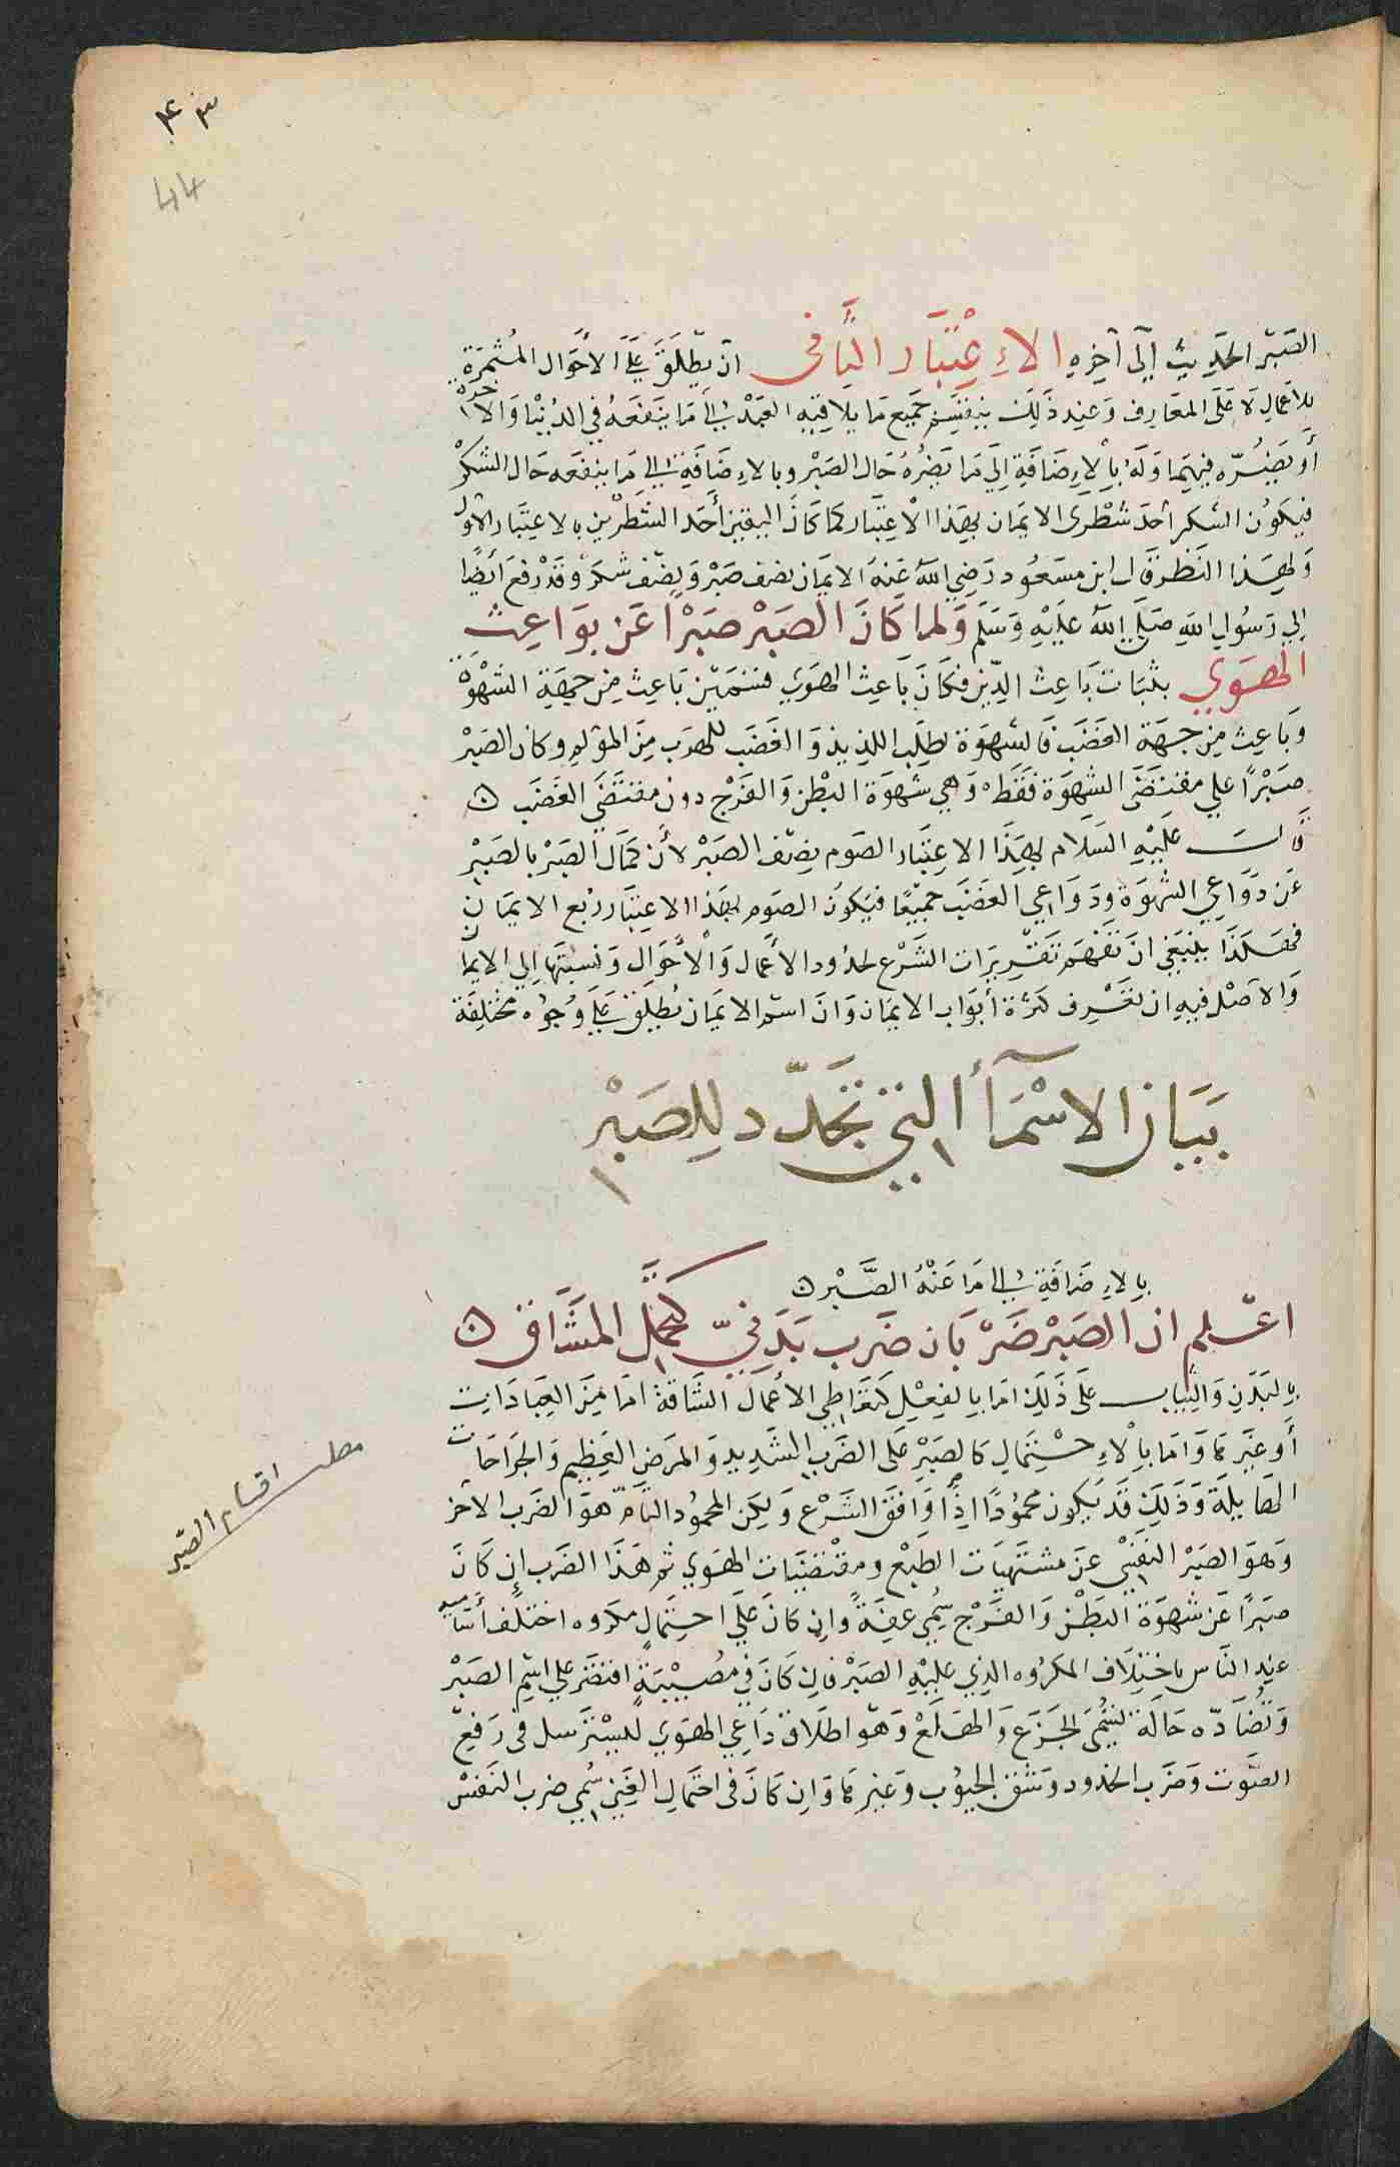 ٤٣
44
الصبر الحديث إلى آخره الاعتبار الثاني أن يطلق على الأحوال المثمرة
للأعمال لا على المعارف وعند ذلك ينقسم جميع ما يلاقيه العبد إلى ما ينفعه في الدنيا والآخرة
أو يضره فيهما وله بالإضافة إلى ما يضره حال الصبر وبالإضافة إلى ما ينفعه حال الشكر
فيكون الشكر أحد شطرى الايمان بهذا الاعتبار كما كان اليقين أحد الشطرين بالاعتبار الاول
ولهذا النظر قال ابن مسعود رضي الله عنه الايمان نصف صبر ونصف شكر وقد رفع أيضا
إلى رسول الله صلى الله عليه وسلم ولما كان الصبر صبرا عن بواعث
الهوي بثبات باعث الدين فكان باعث الهوي قسمين باعث من جهة الشهوة
وباعث من جهة الغضب فالشهوة لطلب اللذيذ والغضب للهرب من المؤلم وكان الصبر
صبرا علي مقتضى الشهوة فقط وهي شهوة البطن والفرج دون مقتضي الغضب
قال عليه السلام بهذا الاعتبار الصوم نصف الصبر لأن كمال الصبر بالصبر
عن دواعي الشهوة ودواعي الغضب جميعا فيكون الصوم بهذا الاعتبار ربع الايمان
فهكذا ينبغي ان تفهم تقريرات الشرع لحدود الأعمال والأحوال ونسبتها إلي الايمان
والأصل فيه ان تعرف كثرة أبواب الايمان وان اسم الايمان يطلق على وجوه مختلفة
بيان الاسمأ التي تجدد للصبر
بالإضافة إلى ما عنه الصبر
اعلم ان الصبر ضربان ضرب بدني كتحمل المشاق
بالبدن والثبات على ذلك اما بالفعل كتعاطي الأعمال الشاقة اما من العبادات
أو غيرها واما بالاحتمال كالصبر على الضرب الشديد والمرض العظيم والجراحات
الهايلة وذلك قد يكون محمودا إذا وافق الشرع ولكن المحمود التام هو الضرب الآخر
وهو الصبر النفسي عن مشتهيات الطبع ومقتضيات الهوي ثم هذا الضرب إن كان
صبرا عن شهوة البطن والفرج سمي عفة وان كان علي احتمال مكروه اختلف أساميه
عند الناس باختلاف المكروه الذي عليه الصبر فان كان في مصيبة اقتصر علي اسم الصبر
وتضاده حالة تسمى الجزع والهلع وهو اطلاق داعي الهوي ليسترسل في رفع
الصوت وضرب الخدود وشق الجيوب وغيرها وان كان في احتمال الغني سمي ضرب النفس
مطلب اقسام الصبر